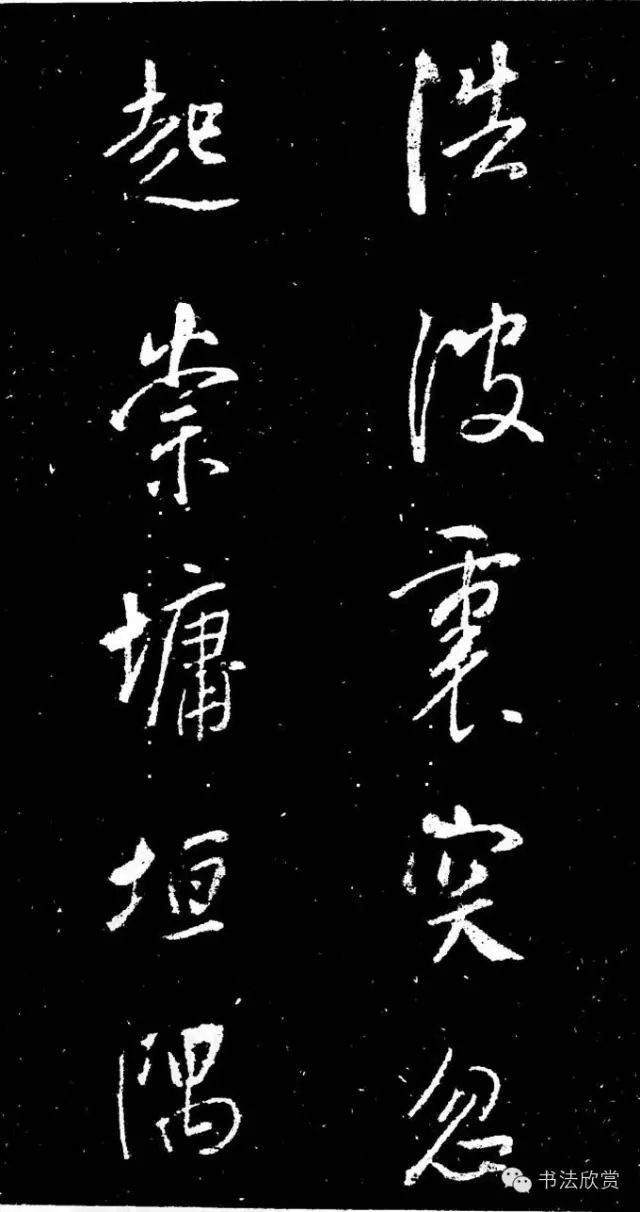 浩波裏突忽
起崇墉垣隅
书法欣赏